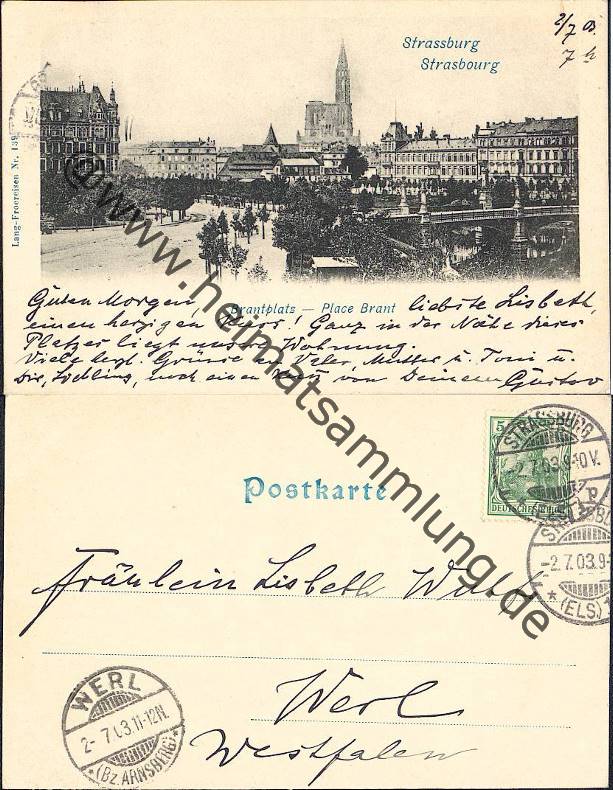 2/7 03
7 h
Strassburg
Strasbourg
Lang-Froereisen Nr. 139
Brantplatz — Place Brant
Guten Morgen, liebste Lisbeth,
einen herzigen Kuss! Ganz in der Nähe dieses
Platzes liegt unsere Wohnung.
Viele hrzl. Grüsse an Vater, Mutter u. Toni u.
Dir, Liebling, noch einen Kuss von Deinem Gustav
@www.heimatsammlung.de
Postkarte
5
DEUTSCHES REICH
STRASSBURG
-2.7.03.9-10V.
(ELS.)
STRASSBU
-2.7.03.9-
* (ELS.)
Fräulein Lisbeth
Werl
Westfalen
WERL
2-7.03.11-12N.
* (Bz. ARNSBERG) *